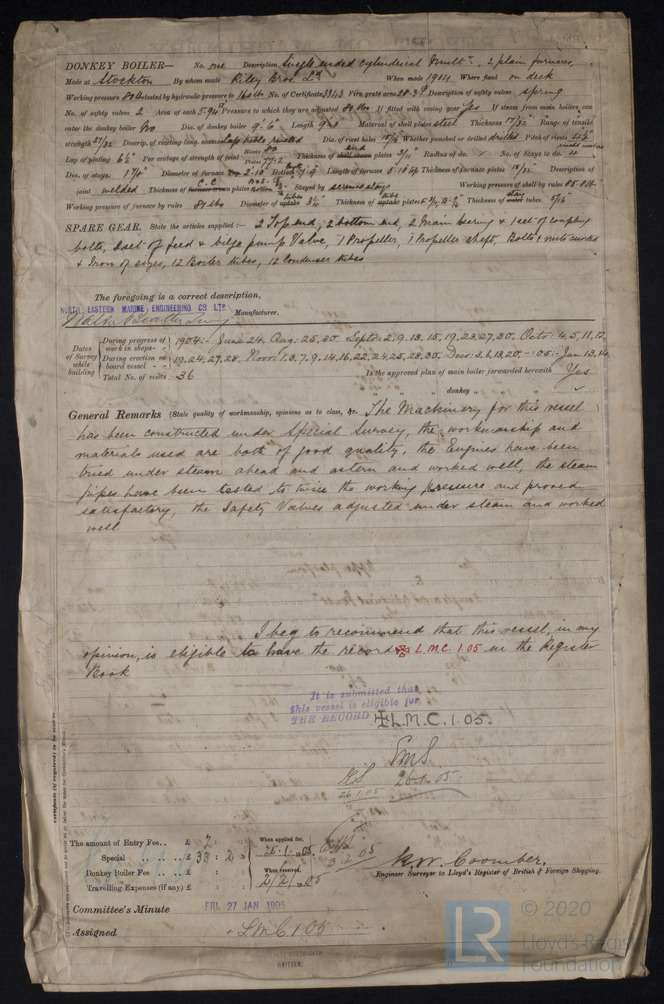 DONKEY BOILER— No. one Description Single ended cylindrical Mult:, 2 plain furnaces,
Made at Stockton By whom made Riley Bros. Ld When made 1904 Where fixed on deck
Working pressure 80 lbs tested by hydraulic pressure to 160 lbs No. of Certificate 3343 Fire grate area Description of safety valves spring
No. of safety valves 2 Area of each 5.94 Pressure to which they are adjusted 84 lbs If fitted with easing gear Yes If steam from main boilers can
enter the donkey boiler No Dia. of donkey boiler 9'.6" Length Material of shell plates steel Thickness 17/32 Range of tensile
strength 27/32 Descrip. of riveting long. seams Dia. of rivet holes Whether punched or drilled drilled Pitch of rivets
Lap of plating 6½" Per centage of strength of joint Rivets 80 Plates 77.2 Thickness of end plates Radius of do. No. of Stays to do.
Dia. of stays. Diameter of furnace Length of furnace Thickness of furnace plates Description of
joint welded Thickness of plates Stayed by screwed stays Working pressure of shell by rules
Working pressure of furnace by rules 84 lbs Diameter of tubes 3¼" Thickness of tube plates Thickness of stay tubes
SPARE GEAR. State the articles supplied:— 2 Top end, 2 bottom end, 2 Main bearing & 1 set of coupling
bolts, 1 set of feed & bilge pump Valve, 1 Propeller, 1 Propeller shaft, Bolts & nuts assorted
& Iron of sizes, 12 Boiler tubes, 12 Condenser tubes
The foregoing is a correct description,
NORTH EASTERN MARINE ENGINEERING CO LTD. Manufacturer.
Dates of Survey while building
During progress of work in shops - 1904:- June 24, Aug: 25, 30. Sept: 2, 9, 13, 15, 19, 23, 27, 30. Octr: 4, 5, 11, 12,
During erection on board vessel - 19, 24, 27, 28. Novr: 1, 3, 7, 9, 14, 16, 22, 24, 25, 28, 30. Decr: 3, 6, 13, 20, -- 05:- Jan 13, 14
Total No. of visits 36 Is the approved plan of main boiler forwarded herewith Yes
" " " donkey " " "
General Remarks (State quality of workmanship, opinions as to class, &c. The Machinery for this vessel
has been constructed under Special Survey, the workmanship and
materials used are both of good quality, the Engines have been
tried under steam ahead and astern and worked well, the steam
pipes have been tested to twice the working pressure and proved
satisfactory, the Safety Valves adjusted under steam and worked
well
I beg to recommend that this vessel, in my
opinion, is eligible to have the record ✠ L.M.C. 1.05 in the Register
Book
It is submitted that
this vessel is eligible for
THE RECORD ✠ L.M.C. 1.05.
26.1.05
26.1.05
Certificate (if required) to be sent to
The amount of Entry Fee.. £ 2 : : When applied for,
Special .. .. .. £ 33 : 2 : 25.1.05
Donkey Boiler Fee .. .. £ : : When received,
Travelling Expenses (if any) £ : : 2/2/05
3.2.05
K.W. Coomber.
Engineer Surveyor to Lloyd's Register of British & Foreign Shipping.
Committee's Minute FRI. 27 JAN 1905
Assigned + L.M.C. 1.05
WRITTEN.
LR © 2020
Lloyd's Register
Foundation